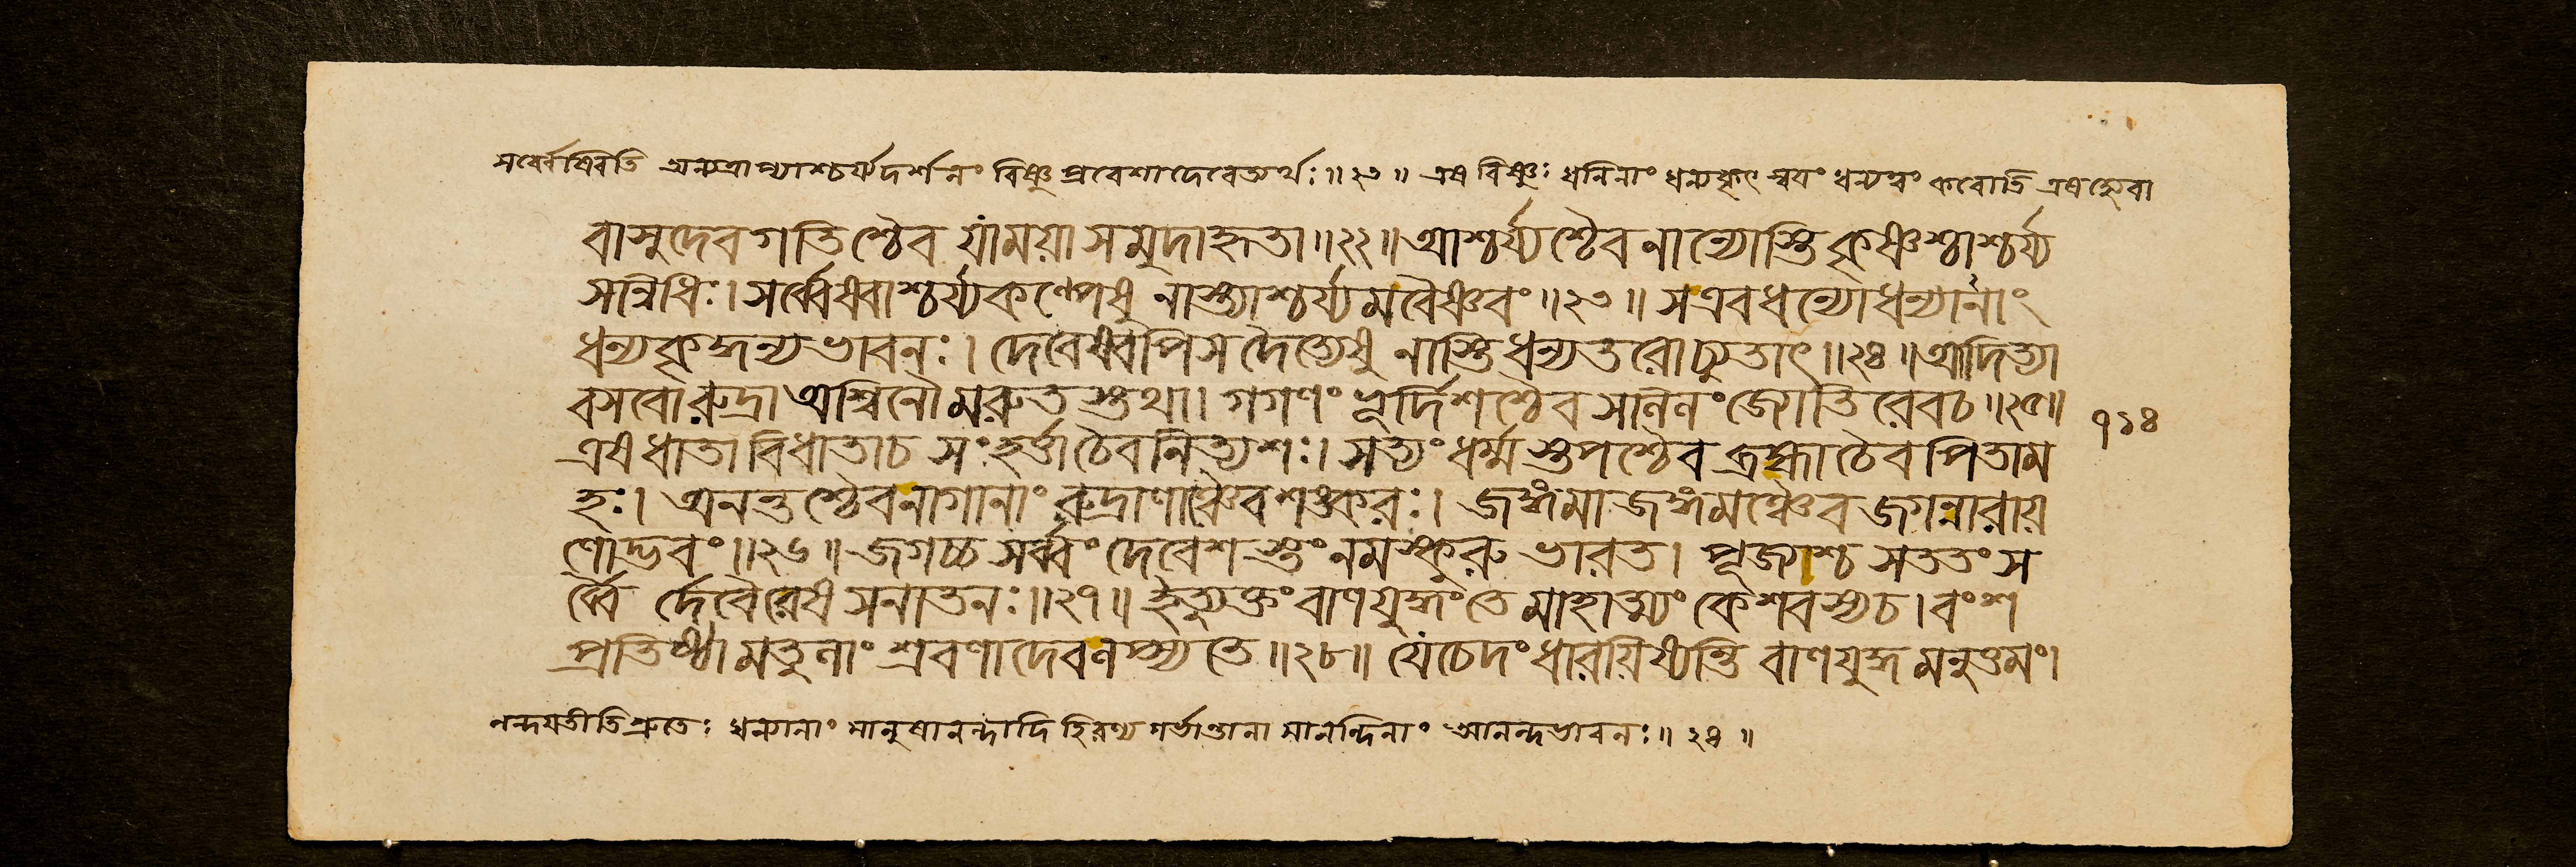 সর্বেষ্বিতি অন্যত্রাপ্যাশ্চর্যদর্শনং বিষ্ণুপ্রবেশাদেবেত্যর্থঃ॥২৩॥ এষ বিষ্ণুঃ ধনিনাং ধন্যকৃৎ স্বয়ং ধন্যত্বং করোতি এষহ্যেবা
বাসুদেবগতিশ্চৈব যাময়া সমুদাহৃতা॥২২॥ আশ্চর্য্যশ্চৈব নান্যোস্তি কৃষ্ণশ্চাশ্চর্য্য
সন্নিধিঃ। সর্ব্বেষ্বাশ্চর্য্যকল্পেষু নাস্ত্যাশ্চর্য্যমবৈষ্ণবং॥২৩॥ সএবধন্যোধন্যানাং
ধন্যকৃদ্ধন্যভাবনঃ। দেবেষ্বপিসদৈত্যেষু নাস্তিধন্যতরোচ্যুতাৎ॥২৪॥ আদিত্যা
বসবোরুদ্রা অশ্বিনৌমরুতস্তথা। গগণং ভূর্দিশশ্চৈব সলিলং জ্যোতিরেবচ॥২৫॥
৭১৪
এষধাতা বিধাতাচ সংহর্ত্তাচৈবনিত্যশঃ। সত্যংধর্ম্মস্তপশ্চৈব ব্রহ্মাচৈব পিতাম
হঃ। অনন্তশ্চৈবনাগানাং রুদ্রাণাঞ্চৈবশঙ্করঃ। জঙ্গমাজঙ্গমঞ্চৈব জগন্নারায়
ণোদ্ভবং॥২৬॥ জগচ্চ সর্ব্বং দেবেশস্তং নমস্কুরু ভারত। পূজ্যশ্চ সততং স
র্ব্বৈ র্দেবৈরেষ সনাতনঃ॥২৭॥ ইত্যুক্তং বাণযুদ্ধং তে মাহাত্ম্যং কেশবস্যচ। বংশ
প্রতিষ্ঠামতুলাং শ্রবণাদেবলপ্স্যতে॥২৮॥ যেচেদং ধারয়িষ্যন্তি বাণযুদ্ধমনুত্তমং।
নন্দয়তীতিশ্রুতেঃ ধন্যানাং মানুষানন্দাদি হিরণ্যগর্ভান্তানা মানন্দিনাং আনন্দভাবনঃ॥ ২৪ ॥